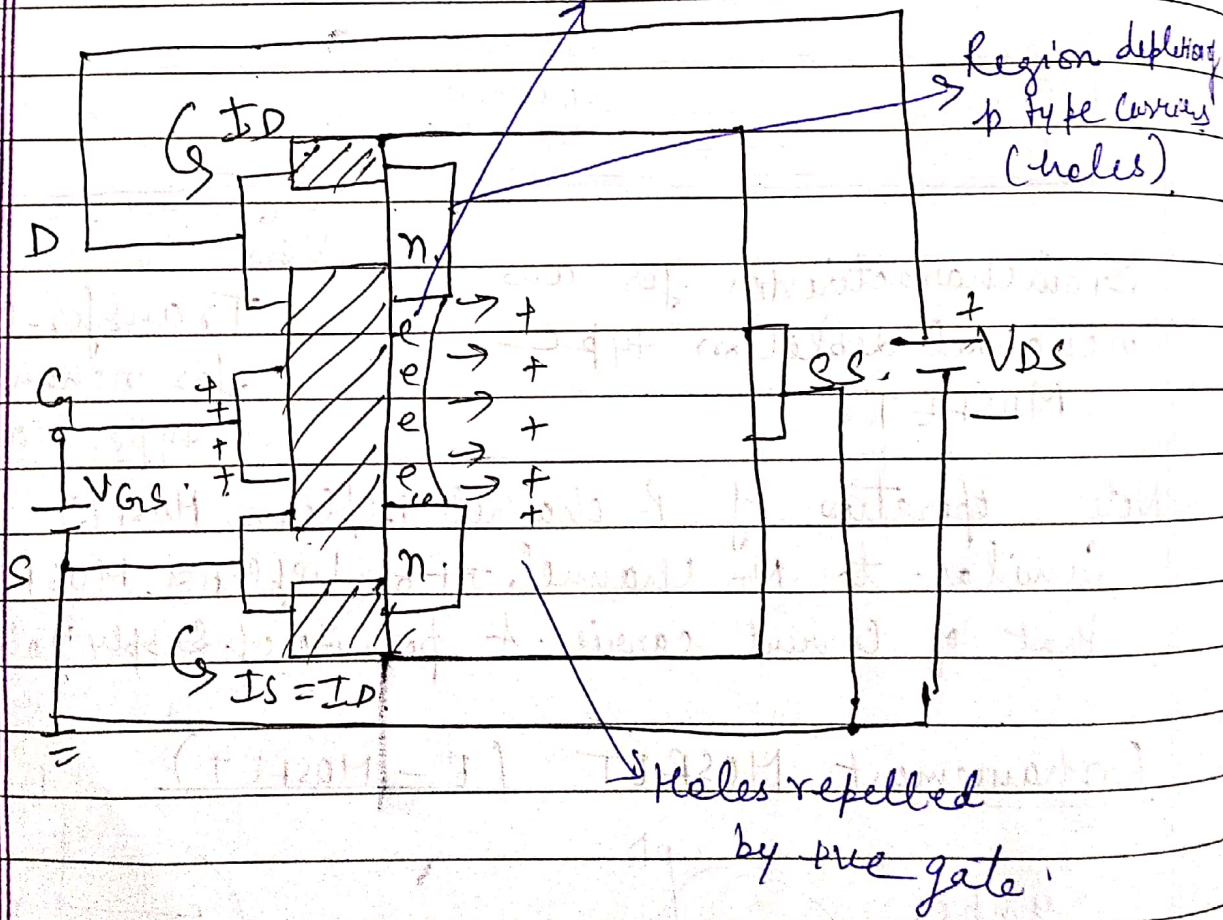 Region depleting
p type Carriers
(holes)
ID
D
n.
e → +
e → +
e → +
e → +
+
+
VDS
SS.
−
G
+
+
+
+
VGS.
S
n.
IS = ID
Holes repelled
by +ve gate.